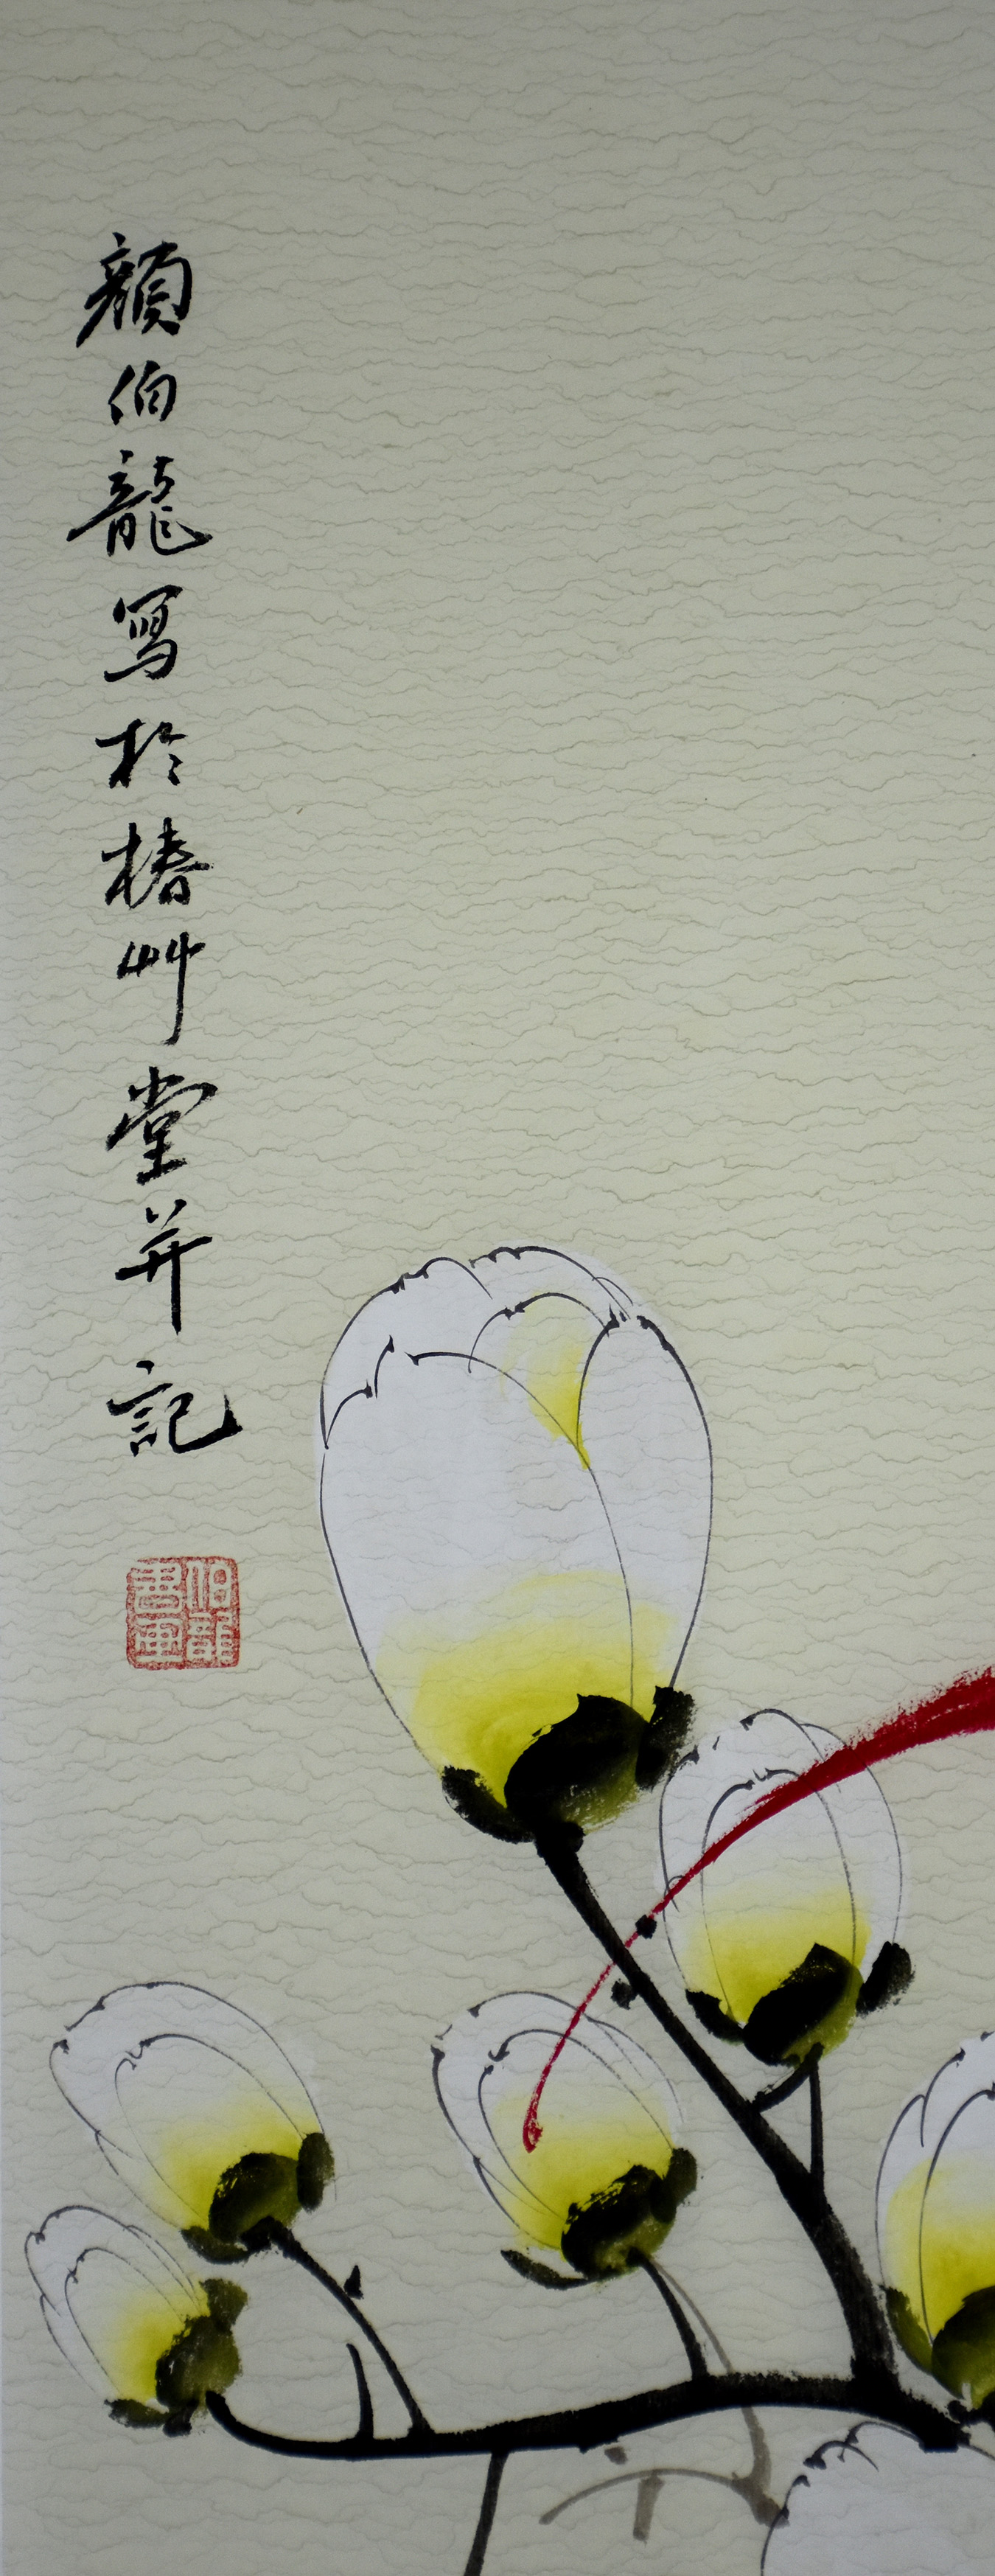 顏伯龍寫於椿艸堂并記
伯龍書画